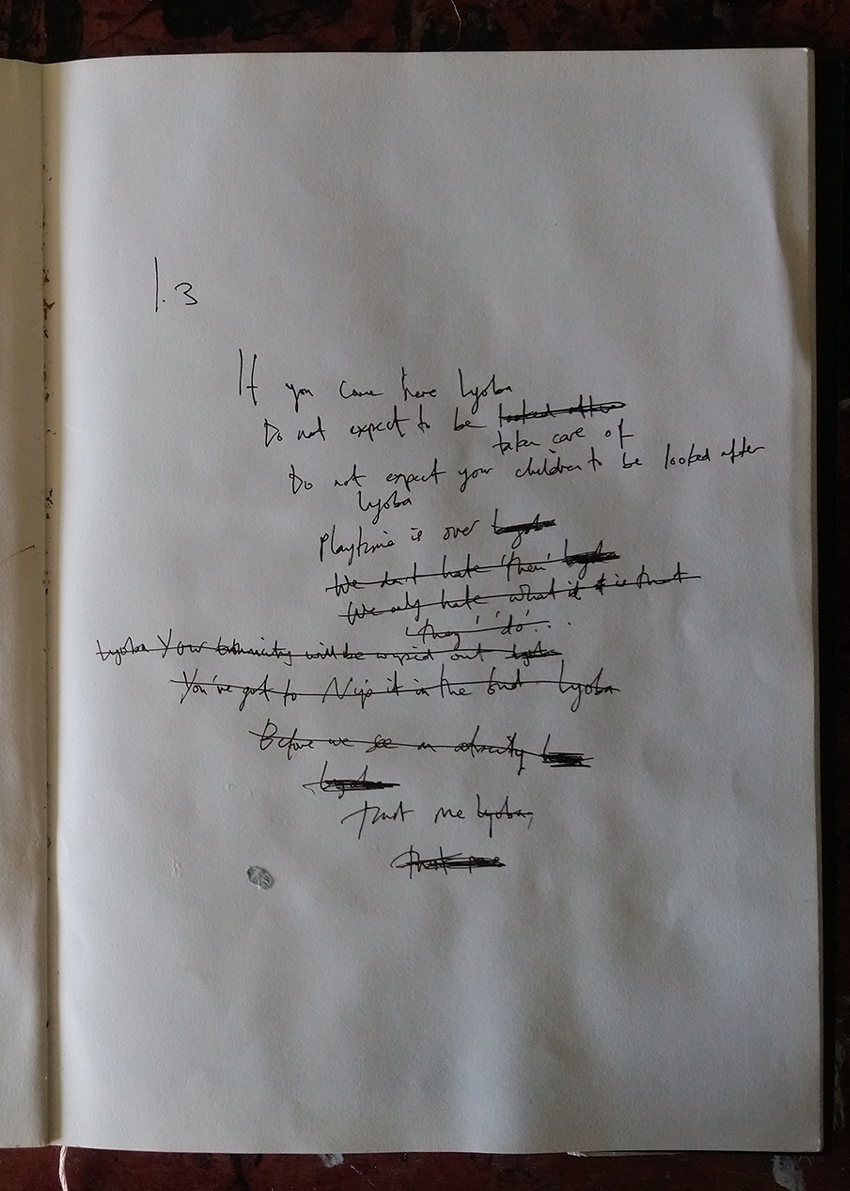 1.3
If you come here Lyoba
Do not expect to be looked after
taken care of
Do not expect your children to be looked after
Lyoba
Playtime is over Lyoba
We don't hate 'them' Lyoba
We only hate what it is that
'they' 'do'...
Lyoba Your ethnicity will be wiped out Lyoba
You've got to Nip it in the bud Lyoba
Before we see an atrocity
Lyoba
Trust me Lyoba,
trust me